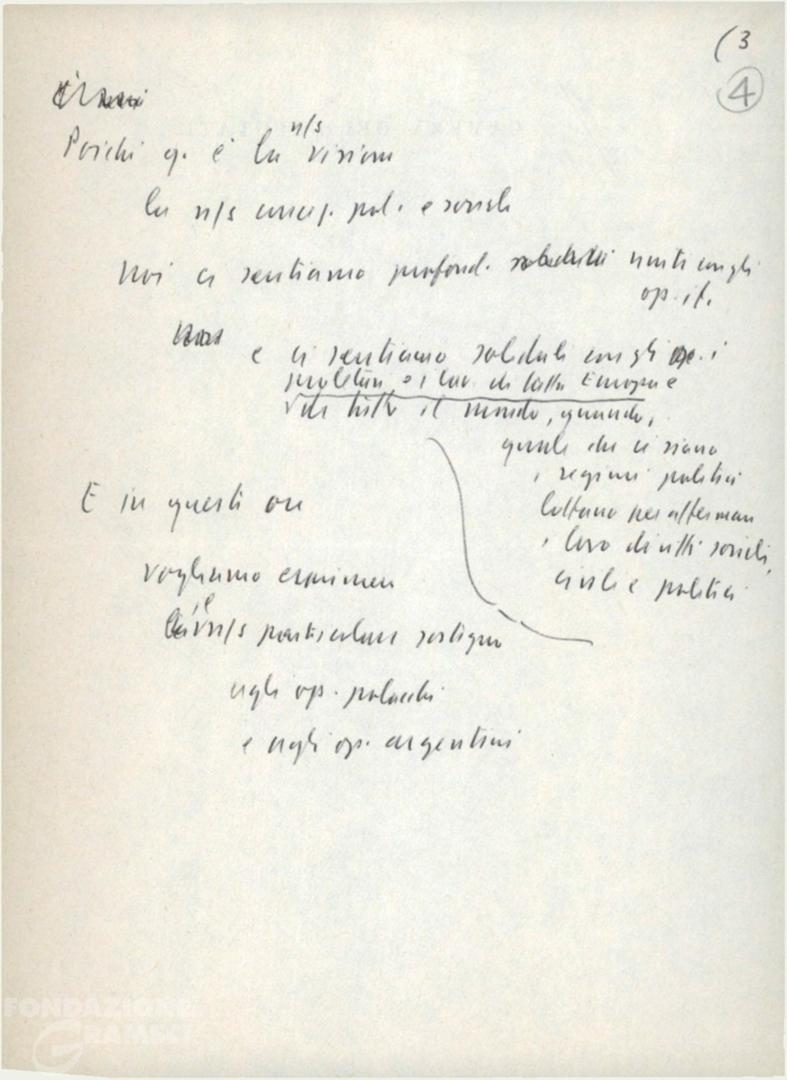 (3
4
Poichè q. è la n/s visione
la n/s concez. pol. e sociale
Noi ci sentiamo profond. uniti con gli
op. it.
e ci sentiamo solidali con gli op. i
proletari e i lav. di tutta Europa e
di tutto il mondo, quando,
quale che ci siano
i regimi politici
lottano per affermare
i loro diritti sociali,
civili e politici
E in questi ore
vogliamo esprimere
il n/s particolare sostegno
agli op. polacchi
e agli op. argentini
FONDAZIONE
GRAMSCI